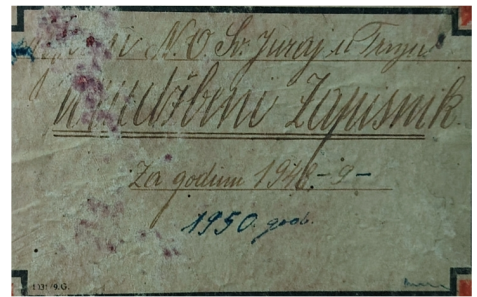 N.O. Sv. Juraj u Trnju
Urudžbeni Zapisnik
Za godinu 1948-9-
1950. god.